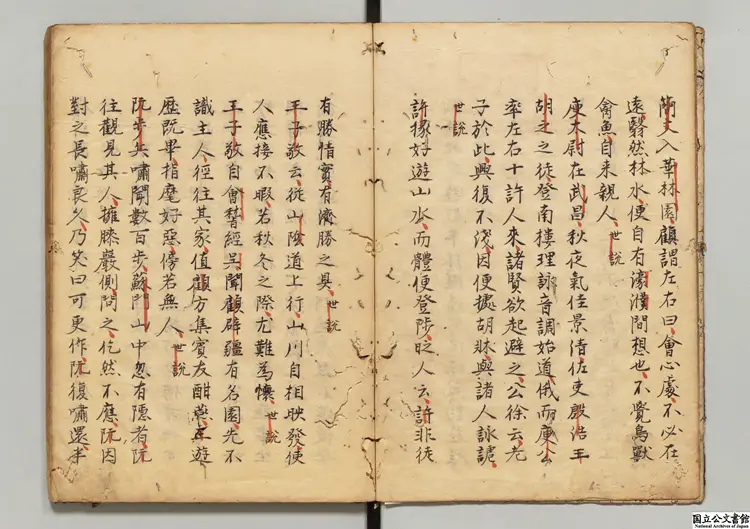 簡文入華林園顧謂左右曰會心處不必在
遠翳然林水便自有濠濮間想也不覺鳥獸
禽魚自来親人世說
庾太尉在武昌秋夜氣佳景清佐吏殷浩王
胡之之徒登南樓理詠音調始遒俄而庾公
率左右十許人來諸賢欲起避之公徐云老
子於此興復不淺因便據胡牀與諸人詠謔
世說
許掾好遊山水而體便登陟时人云許非徒
有勝情實有濟勝之具世說
王子敬云從山陰道上行山川自相映發使
人應接不暇若秋冬之際尤難為懷世說
王子敬自會稽經吳聞顧辟疆有名園先不
識主人徑往其家值顧方集賓友酣燕王遊
歷既畢指麾好惡傍若無人世說
阮步兵嘯聞數百步蘇門山中忽有隱者阮
往觀見其人擁膝巖側問之仡然不應阮因
對之長嘯良久乃笑曰可更作阮復嘯還半
国立公文書館
National Archives of Japan